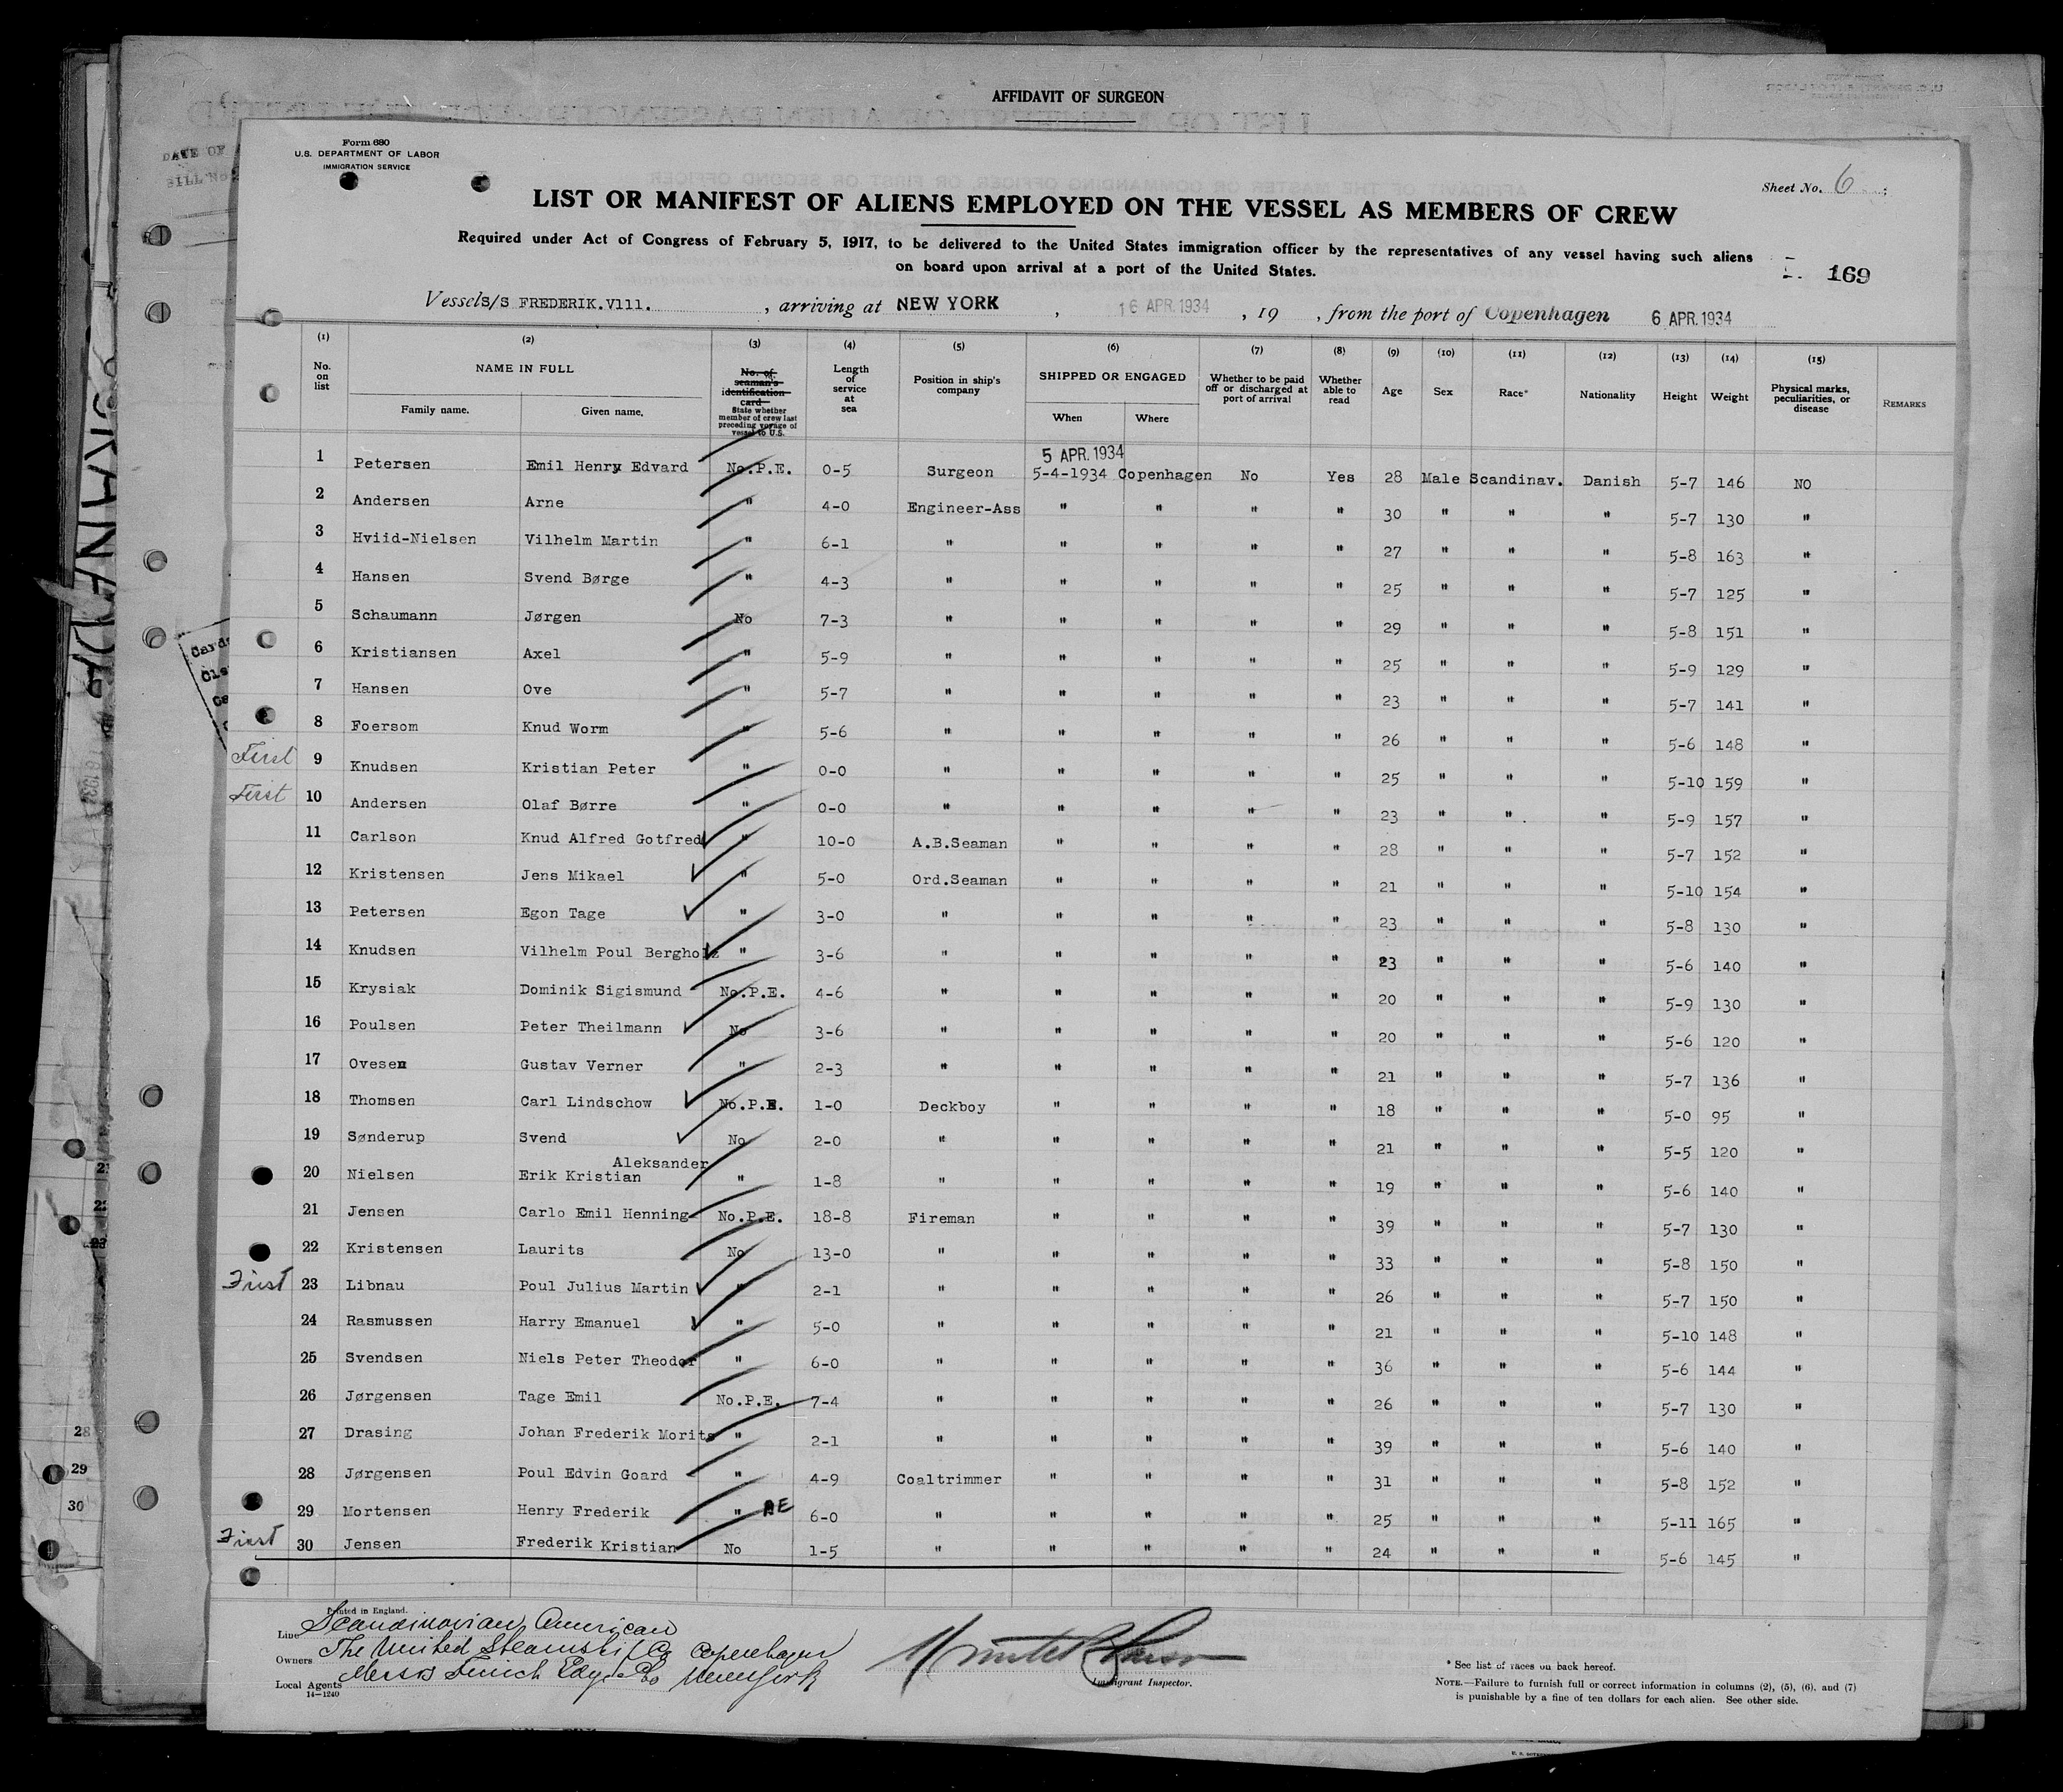 AFFIDAVIT OF SURGEON
Form 680
U.S. DEPARTMENT OF LABOR
IMMIGRATION SERVICE
Sheet No. 6
LIST OR MANIFEST OF ALIENS EMPLOYED ON THE VESSEL AS MEMBERS OF CREW
Required under Act of Congress of February 5, 1917, to be delivered to the United States immigration officer by the representatives of any vessel having such aliens
on board upon arrival at a port of the United States.
169
Vessel S/S FREDERIK.V111. , arriving at NEW YORK , 16 APR.1934 , 19 , from the port of Copenhagen 6 APR.1934
(1) (2) (3) (4) (5) (6) (7) (8) (9) (10) (11) (12) (13) (14) (15)
No. on list NAME IN FULL Family name. Given name. No. of seaman's identification card State whether member of crew last preceding voyage of vessel to U.S. Length of service at sea Position in ship's company SHIPPED OR ENGAGED When Where Whether to be paid off or discharged at port of arrival Whether able to read Age Sex Race* Nationality Height Weight Physical marks, peculiarities, or disease REMARKS
5 APR.1934
1 Petersen Emil Henry Edvard No.P.E. 0-5 Surgeon 5-4-1934 Copenhagen No Yes 28 Male Scandinav. Danish 5-7 146 NO
2 Andersen Arne " 4-0 Engineer-Ass " " " " 30 " " " 5-7 130 "
3 Hviid-Nielsen Vilhelm Martin " 6-1 " " " " " 27 " " " 5-8 163 "
4 Hansen Svend Børge " 4-3 " " " " " 25 " " " 5-7 125 "
5 Schaumann Jørgen No 7-3 " " " " " 29 " " " 5-8 151 "
6 Kristiansen Axel " 5-9 " " " " " 25 " " " 5-9 129 "
7 Hansen Ove " 5-7 " " " " " 23 " " " 5-7 141 "
8 Foersom Knud Worm " 5-6 " " " " " 26 " " " 5-6 148 "
First 9 Knudsen Kristian Peter " 0-0 " " " " " 25 " " " 5-10 159 "
First 10 Andersen Olaf Børre " 0-0 " " " " " 23 " " " 5-9 157 "
11 Carlson Knud Alfred Gotfred " 10-0 A.B.Seaman " " " " 28 " " " 5-7 152 "
12 Kristensen Jens Mikael " 5-0 Ord.Seaman " " " " 21 " " " 5-10 154 "
13 Petersen Egon Tage " 3-0 " " " " " 23 " " " 5-8 130 "
14 Knudsen Vilhelm Poul Bergholz " 3-6 " " " " " 23 " " " 5-6 140 "
15 Krysiak Dominik Sigismund No.P.E. 4-6 " " " " " 20 " " " 5-9 130 "
16 Poulsen Peter Theilmann No 3-6 " " " " " 20 " " " 5-6 120 "
17 Ovesen Gustav Verner " 2-3 " " " " " 21 " " " 5-7 136 "
18 Thomsen Carl Lindschow No.P.E. 1-0 Deckboy " " " " 18 " " " 5-0 95 "
19 Sønderup Svend No 2-0 " " " " " 21 " " " 5-5 120 "
Aleksander
20 Nielsen Erik Kristian " 1-8 " " " " " 19 " " " 5-6 140 "
21 Jensen Carlo Emil Henning No.P.E. 18-8 Fireman " " " " 39 " " " 5-7 130 "
22 Kristensen Laurits No 13-0 " " " " " 33 " " " 5-8 150 "
First 23 Libnau Poul Julius Martin " 2-1 " " " " " 26 " " " 5-7 150 "
24 Rasmussen Harry Emanuel " 5-0 " " " " " 21 " " " 5-10 148 "
25 Svendsen Niels Peter Theodor " 6-0 " " " " " 36 " " " 5-6 144 "
26 Jørgensen Tage Emil No.P.E. 7-4 " " " " " 26 " " " 5-7 130 "
27 Drasing Johan Frederik Morits " 2-1 " " " " " 39 " " " 5-6 140 "
28 Jørgensen Poul Edvin Goard " 4-9 Coaltrimmer " " " " 31 " " " 5-8 152 "
29 Mortensen Henry Frederik " AE 6-0 " " " " " 25 " " " 5-11 165 "
First 30 Jensen Frederik Kristian No 1-5 " " " " " 24 " " " 5-6 145 "
Printed in England.
Line Scandinavian American
Owners The United Steamship Co Copenhagen
Local Agents Messrs Funch Edye Co New York
14—1240
Immigrant Inspector.
* See list of races on back hereof.
NOTE.—Failure to furnish full or correct information in columns (2), (5), (6), and (7)
is punishable by a fine of ten dollars for each alien. See other side.
28
29
30